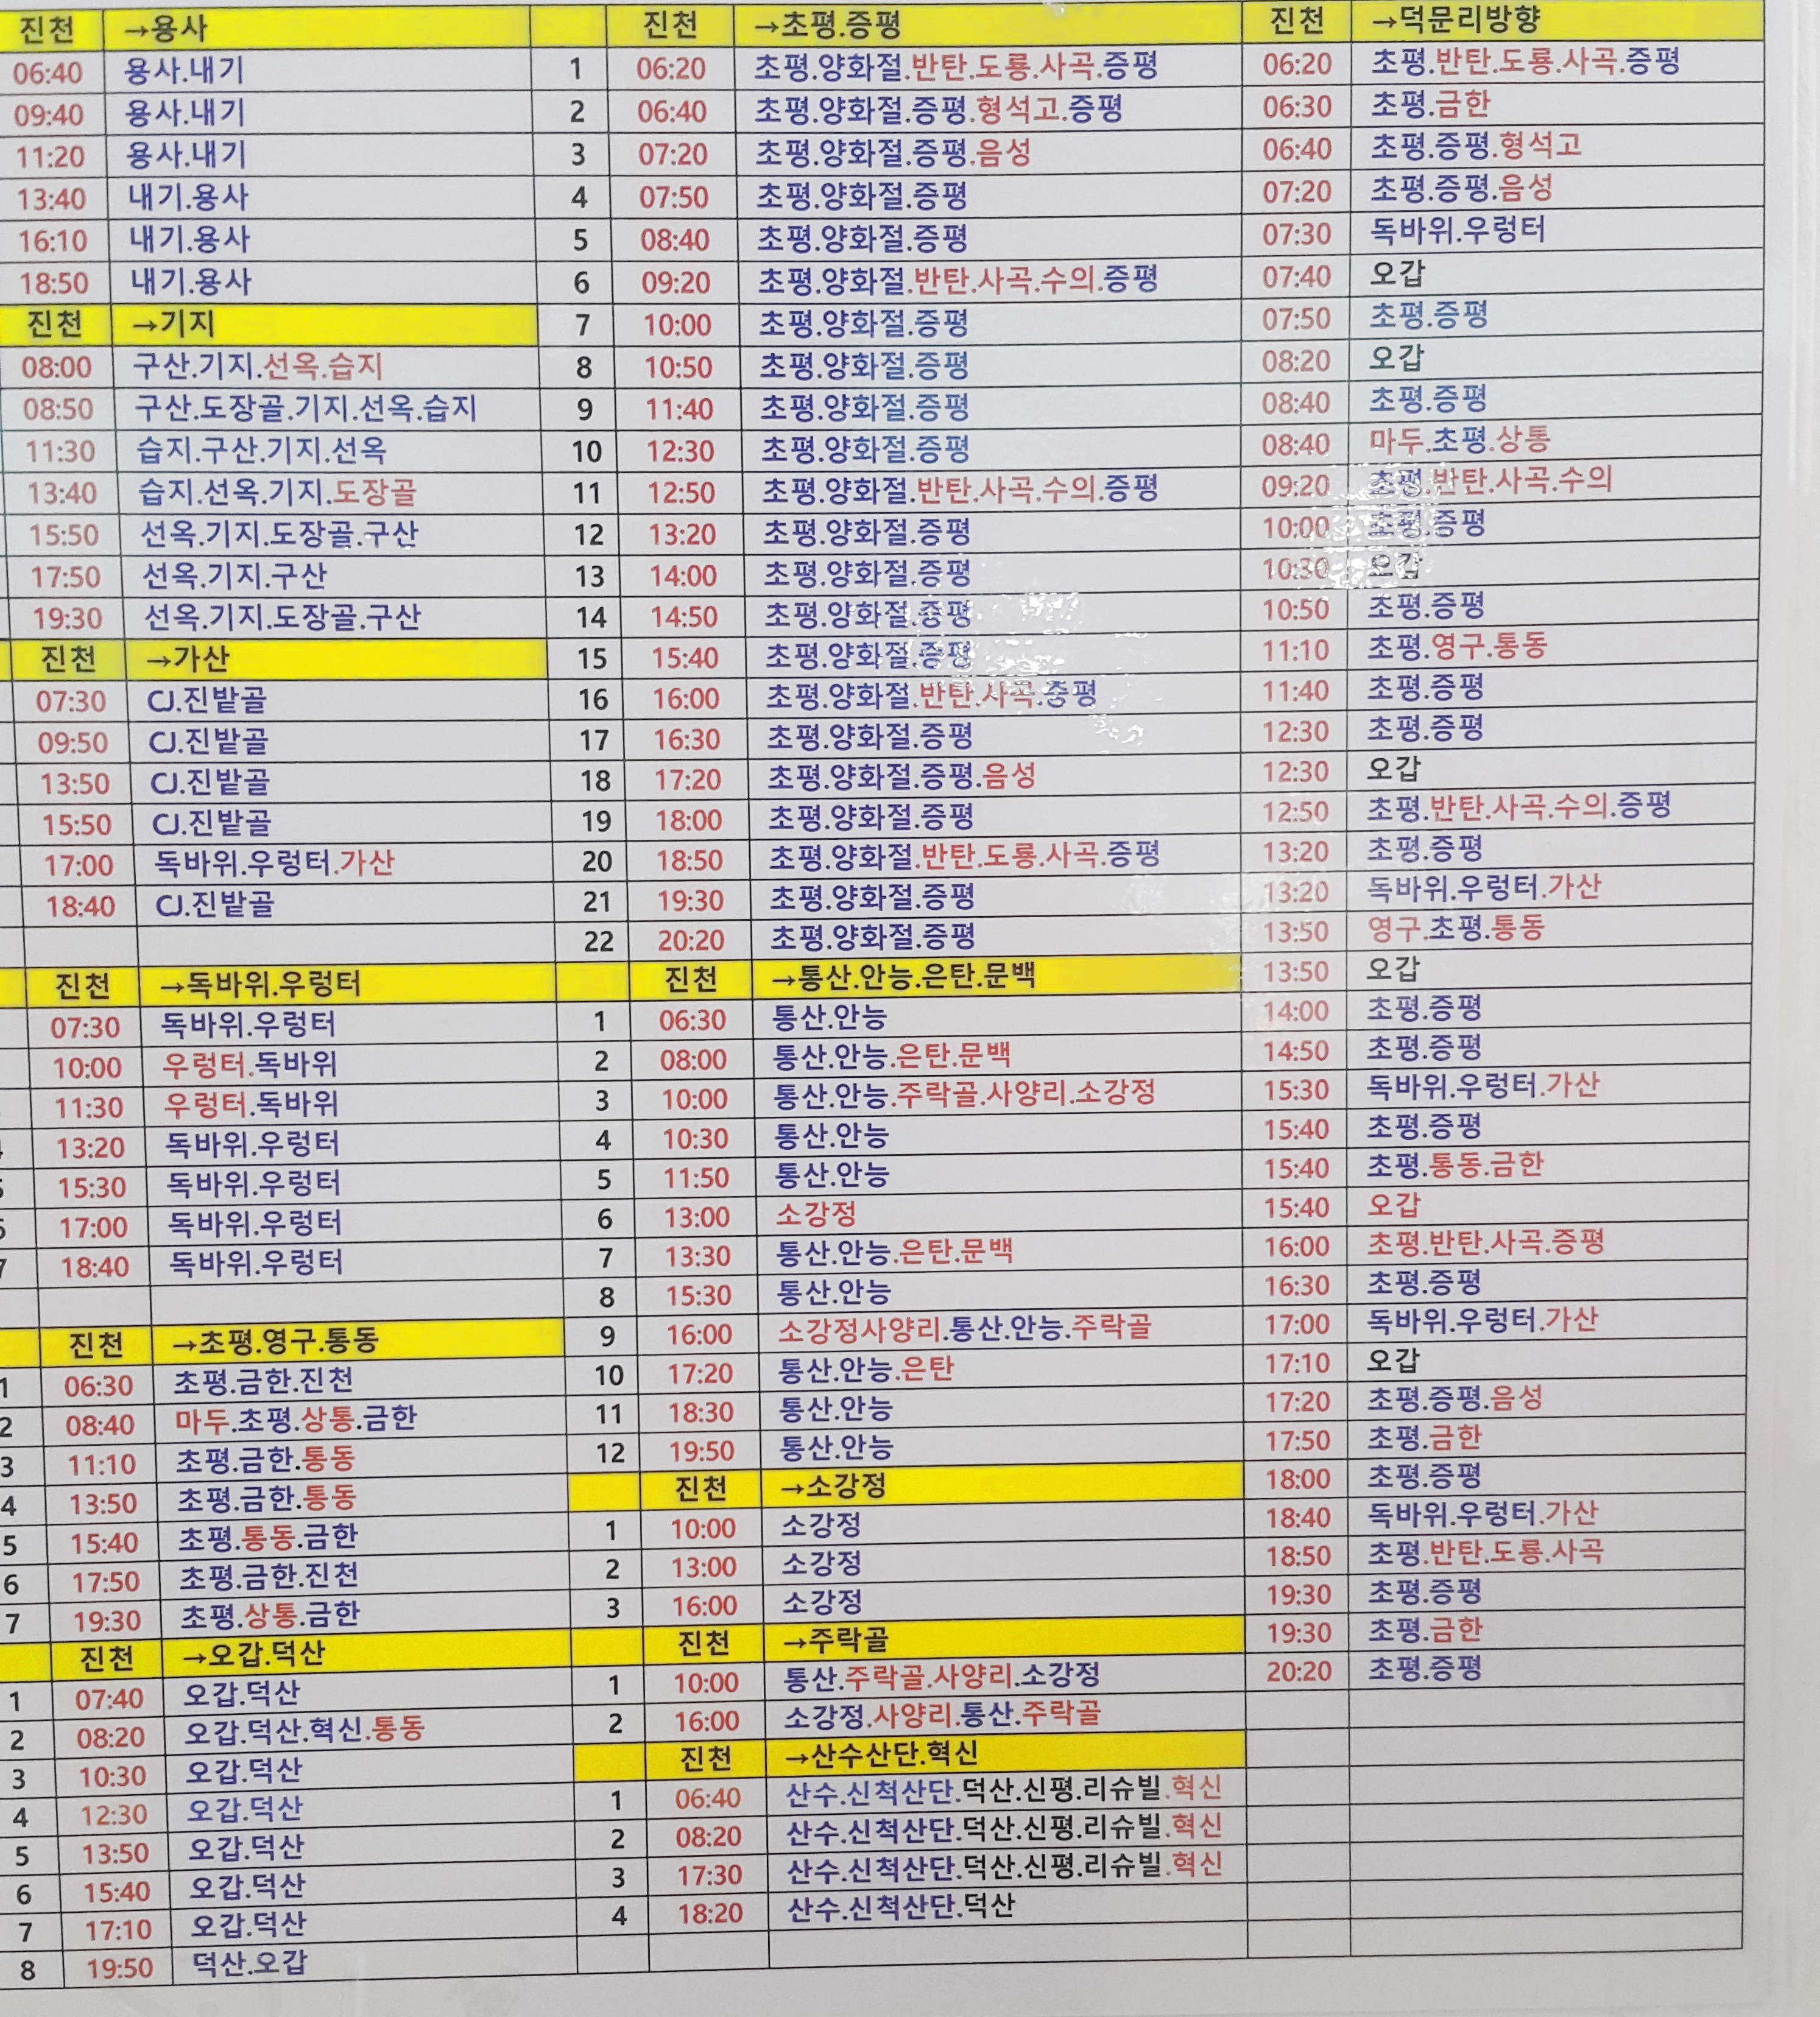 진천 →용사
06:40 용사.내기
09:40 용사.내기
11:20 용사.내기
13:40 내기.용사
16:10 내기.용사
18:50 내기.용사
진천 →기지
08:00 구산.기지.선옥.습지
08:50 구산.도장골.기지.선옥.습지
11:30 습지.구산.기지.선옥
13:40 습지.선옥.기지.도장골
15:50 선옥.기지.도장골.구산
17:50 선옥.기지.구산
19:30 선옥.기지.도장골.구산
진천 →가산
07:30 CJ.진밭골
09:50 CJ.진밭골
13:50 CJ.진밭골
15:50 CJ.진밭골
17:00 독바위.우렁터.가산
18:40 CJ.진밭골
진천 →독바위.우렁터
07:30 독바위.우렁터
10:00 우렁터.독바위
11:30 우렁터.독바위
13:20 독바위.우렁터
15:30 독바위.우렁터
17:00 독바위.우렁터
18:40 독바위.우렁터
진천 →초평.영구.통동
1 06:30 초평.금한.진천
2 08:40 마두.초평.상통.금한
3 11:10 초평.금한.통동
4 13:50 초평.금한.통동
5 15:40 초평.통동.금한
6 17:50 초평.금한.진천
7 19:30 초평.상통.금한
진천 →오갑.덕산
1 07:40 오갑.덕산
2 08:20 오갑.덕산.혁신.통동
3 10:30 오갑.덕산
4 12:30 오갑.덕산
5 13:50 오갑.덕산
6 15:40 오갑.덕산
7 17:10 오갑.덕산
8 19:50 덕산.오갑
진천 →초평.증평
1 06:20 초평.양화절.반탄.도룡.사곡.증평
2 06:40 초평.양화절.증평.형석고.증평
3 07:20 초평.양화절.증평.음성
4 07:50 초평.양화절.증평
5 08:40 초평.양화절.증평
6 09:20 초평.양화절.반탄.사곡.수의.증평
7 10:00 초평.양화절.증평
8 10:50 초평.양화절.증평
9 11:40 초평.양화절.증평
10 12:30 초평.양화절.증평
11 12:50 초평.양화절.반탄.사곡.수의.증평
12 13:20 초평.양화절.증평
13 14:00 초평.양화절.증평
14 14:50 초평.양화절.증평
15 15:40 초평.양화절.증평
16 16:00 초평.양화절.반탄.사곡.증평
17 16:30 초평.양화절.증평
18 17:20 초평.양화절.증평.음성
19 18:00 초평.양화절.증평
20 18:50 초평.양화절.반탄.도룡.사곡.증평
21 19:30 초평.양화절.증평
22 20:20 초평.양화절.증평
진천 →통산.안능.은탄.문백
1 06:30 통산.안능
2 08:00 통산.안능.은탄.문백
3 10:00 통산.안능.주락골.사양리.소강정
4 10:30 통산.안능
5 11:50 통산.안능
6 13:00 소강정
7 13:30 통산.안능.은탄.문백
8 15:30 통산.안능
9 16:00 소강정사양리.통산.안능.주락골
10 17:20 통산.안능.은탄
11 18:30 통산.안능
12 19:50 통산.안능
진천 →소강정
1 10:00 소강정
2 13:00 소강정
3 16:00 소강정
진천 →주락골
1 10:00 통산.주락골.사양리.소강정
2 16:00 소강정.사양리.통산.주락골
진천 →산수산단.혁신
1 06:40 산수.신척산단.덕산.신평.리슈빌.혁신
2 08:20 산수.신척산단.덕산.신평.리슈빌.혁신
3 17:30 산수.신척산단.덕산.신평.리슈빌.혁신
4 18:20 산수.신척산단.덕산
진천 →덕문리방향
06:20 초평.반탄.도룡.사곡.증평
06:30 초평.금한
06:40 초평.증평.형석고
07:20 초평.증평.음성
07:30 독바위.우렁터
07:40 오갑
07:50 초평.증평
08:20 오갑
08:40 초평.증평
08:40 마두.초평.상통
09:20 초평.반탄.사곡.수의
10:00 초평.증평
10:30 오갑
10:50 초평.증평
11:10 초평.영구.통동
11:40 초평.증평
12:30 초평.증평
12:30 오갑
12:50 초평.반탄.사곡.수의.증평
13:20 초평.증평
13:20 독바위.우렁터.가산
13:50 영구.초평.통동
13:50 오갑
14:00 초평.증평
14:50 초평.증평
15:30 독바위.우렁터.가산
15:40 초평.증평
15:40 초평.통동.금한
15:40 오갑
16:00 초평.반탄.사곡.증평
16:30 초평.증평
17:00 독바위.우렁터.가산
17:10 오갑
17:20 초평.증평.음성
17:50 초평.금한
18:00 초평.증평
18:40 독바위.우렁터.가산
18:50 초평.반탄.도룡.사곡
19:30 초평.증평
19:30 초평.금한
20:20 초평.증평